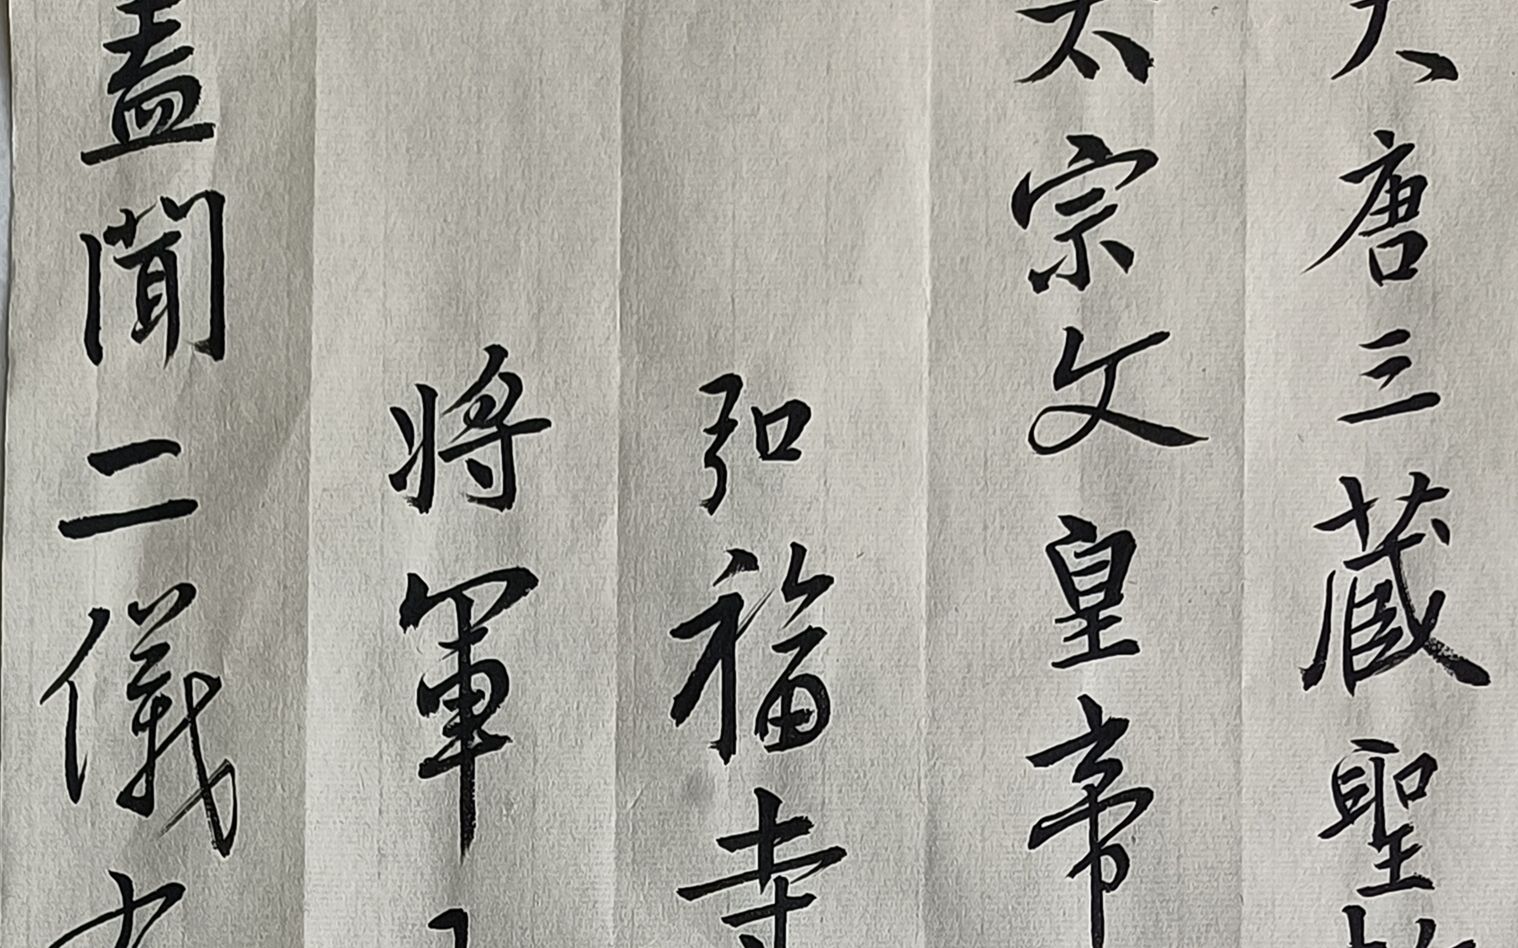 大唐三藏聖教
太宗文皇帝
弘福寺
將軍王
蓋聞二儀有